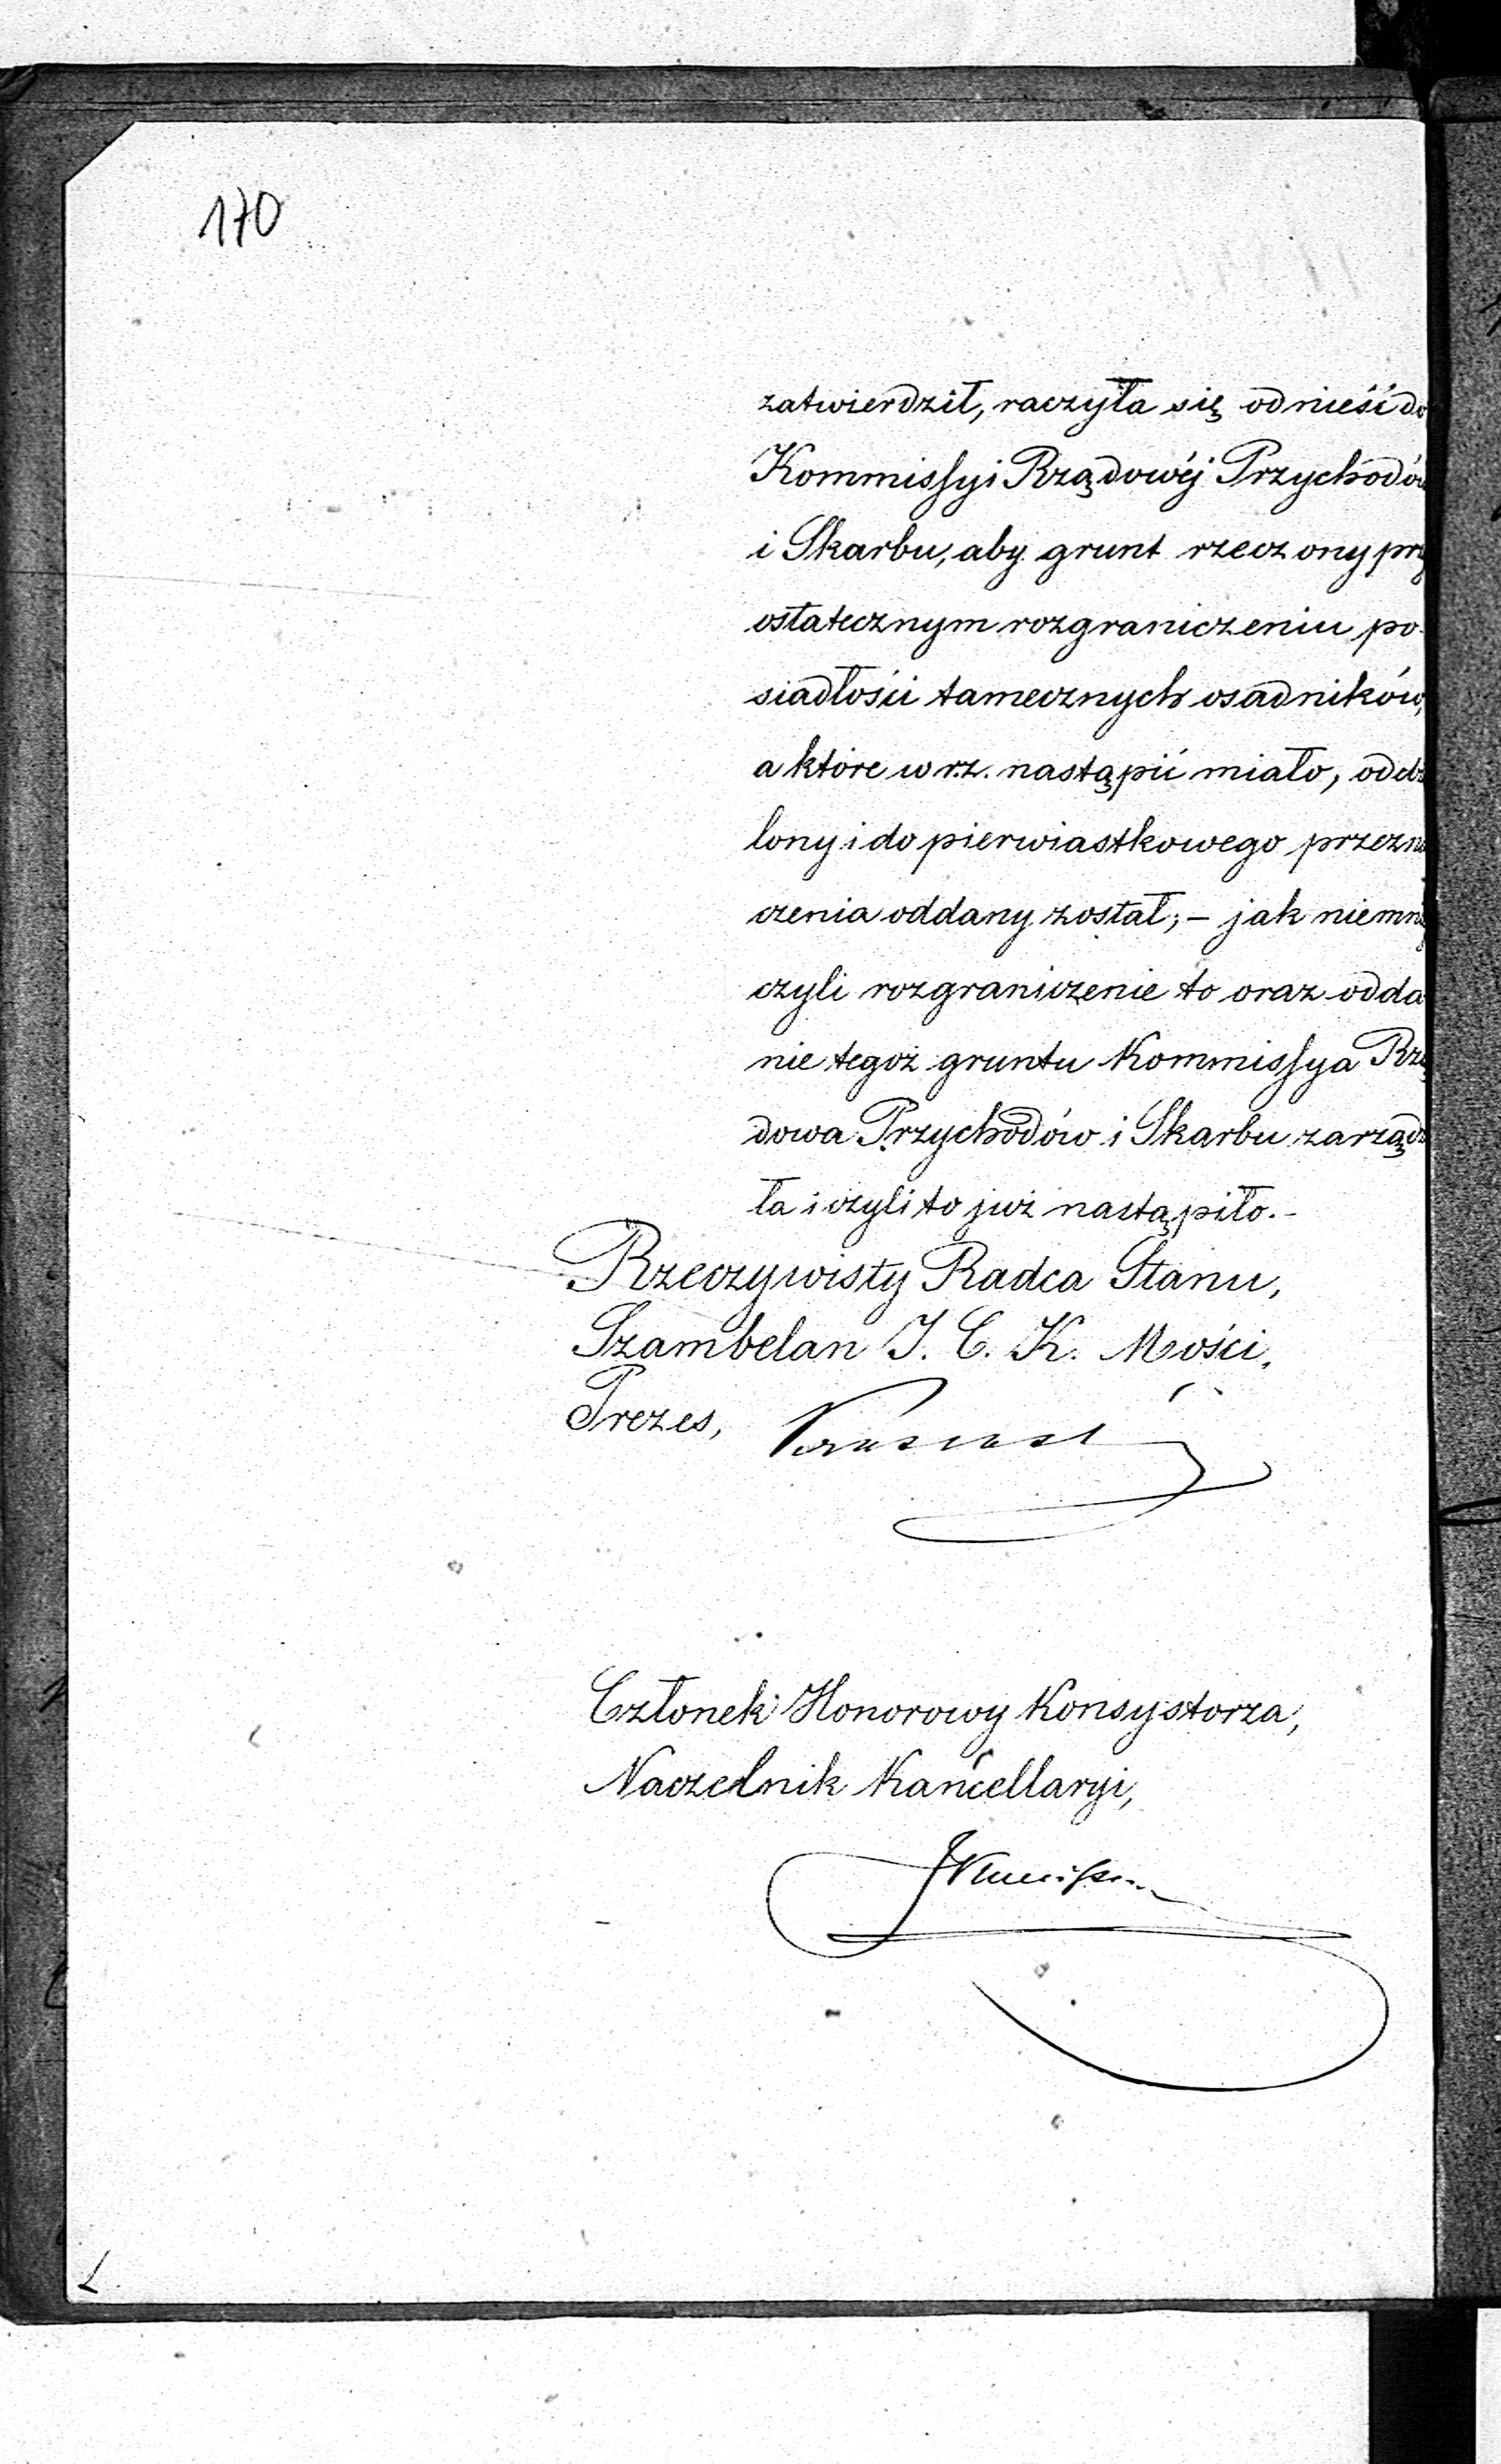 170
zatwierdził, raczyła się odnieść do
Kommissyi Rządowéj Przychodów
i Skarbu, aby grunt rzeczony prz
ostatecznym rozgraniczeniu po-
siadłości tamecznych osadników,
a które w r.z. nastąpić miało, oddz
lony i do pierwiastkowego przezna
czenia oddany został; – jak niemni
czyli rozgraniczenie to oraz odda
nie tegoż gruntu Kommissya Rzą
dowa Przychodów i Skarbu zarządz
ła i czyli to już nastąpiło. –
Rzeczywisty Radca Stanu,
Szambelan J. C. K. Mości,
Prezes,
Członek Honorowy Konsystorza,
Naczelnik Kancellaryi,